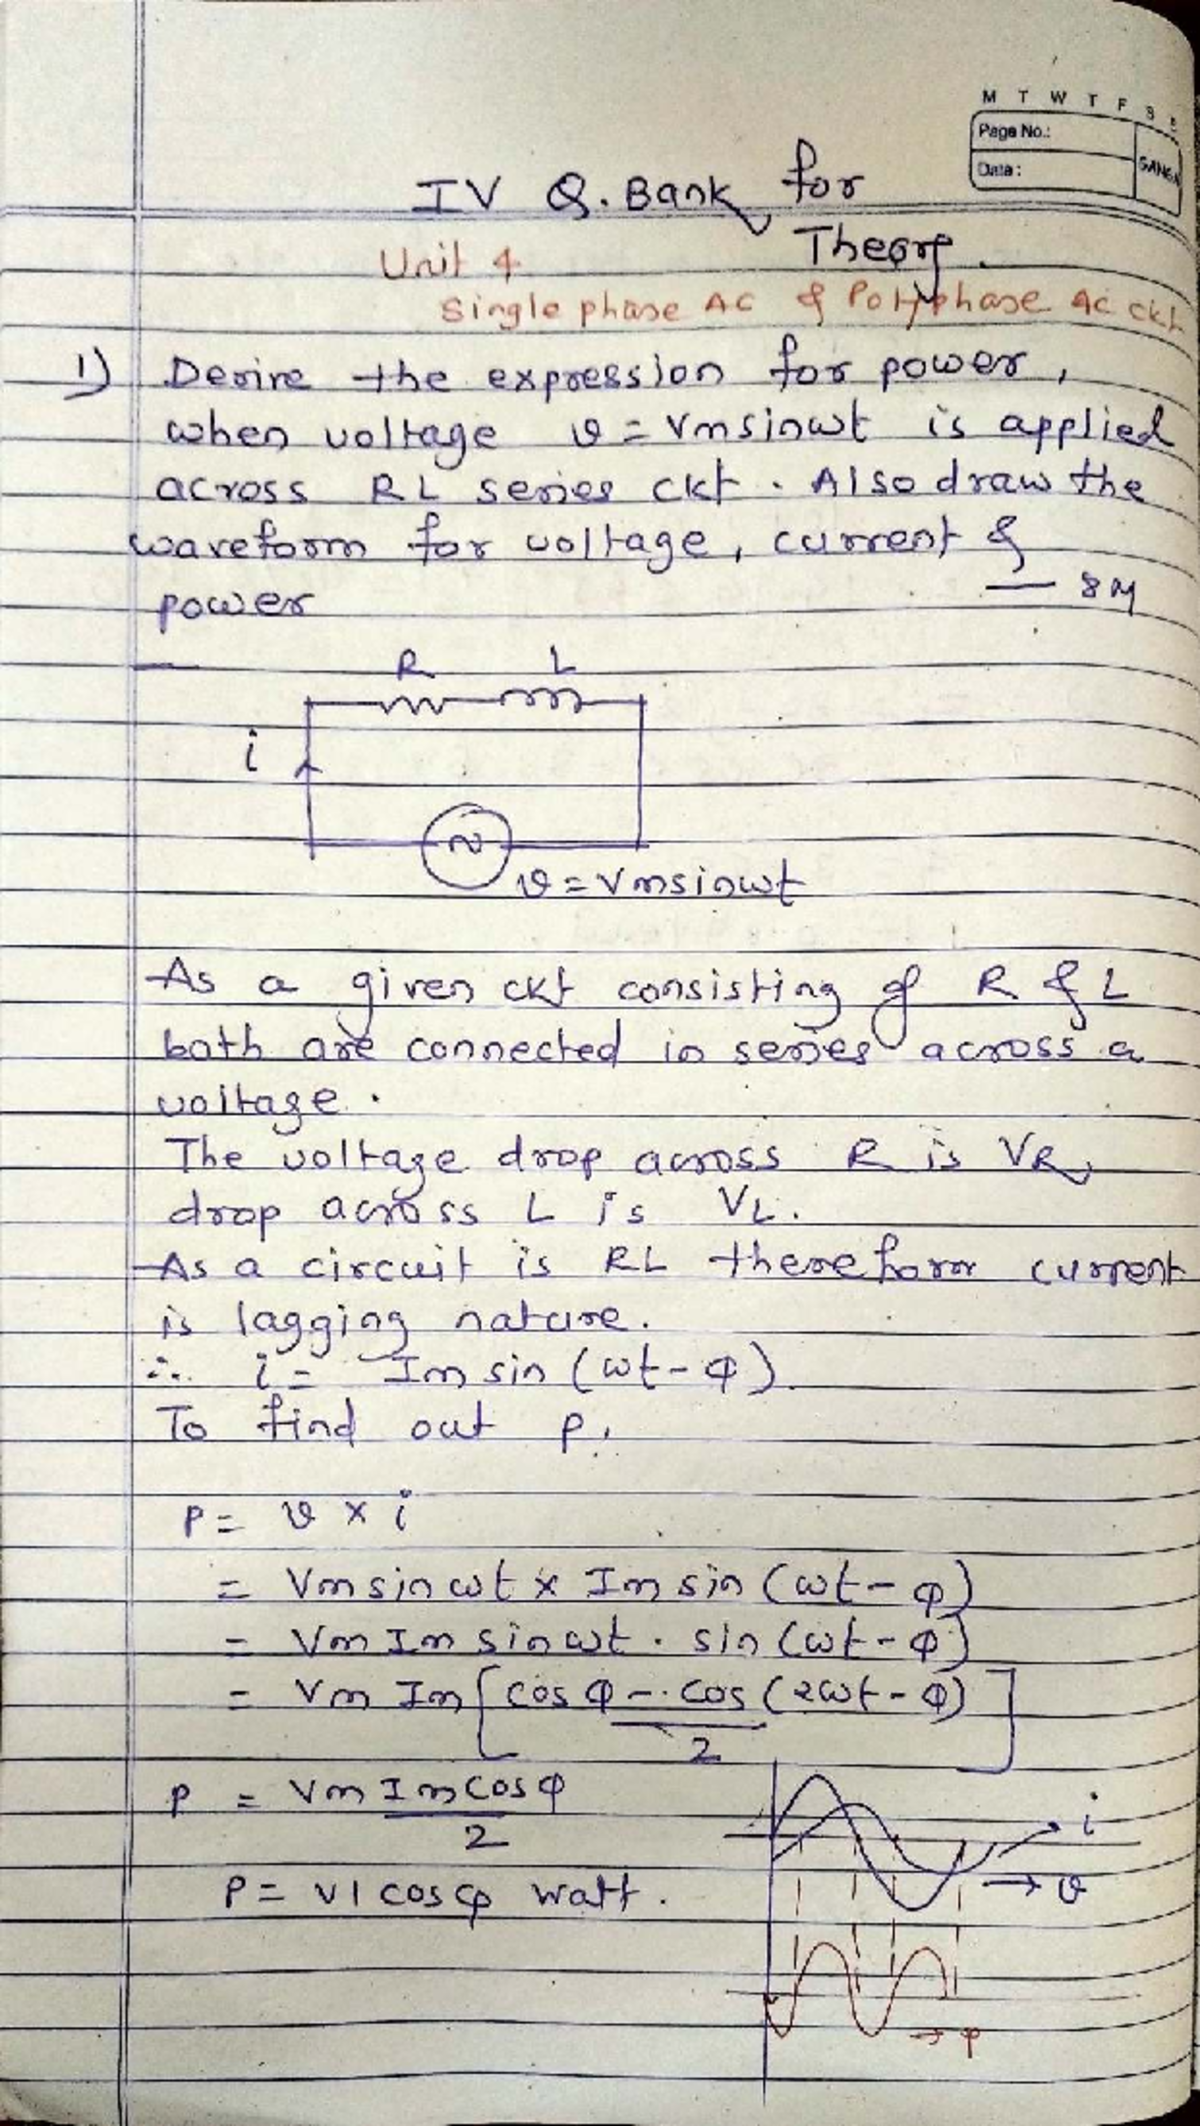 M T W T F S S
Page No.:
Date:
IV Q. Bank for
Theory.
Unit 4
Single phase AC & Polyphase AC ckt
1) Derive the expression for power,
when voltage v = Vmsinwt is applied
across RL series ckt. Also draw the
waveform for voltage, current &
power — 8M
R L
i
~
v = Vmsinwt
As a given ckt consisting of R & L
both are connected in series across a
voltage.
The voltage drop across R is VR,
drop across L is VL.
As a circuit is RL thereform current
is lagging nature.
∴ i = Im sin (ωt-φ).
To find out P,
P = v x i
= Vm sin ωt x Im sin (ωt-φ)
= Vm Im sin ωt . sin (ωt-φ)
= Vm Im [cos φ - cos (2ωt-φ)]
2
P = Vm Im cos φ
2
i
P = VI cos φ watt.
→ v
→ P